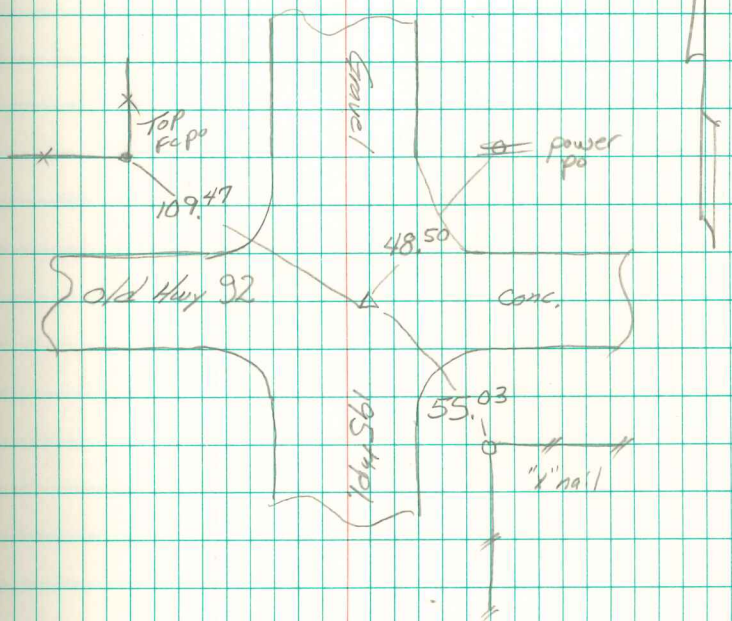 Gravel
Top
Fc po
power
po
109.47
48.50
Old Hwy 92
Conc.
55.03
195th pl.
"X" nail